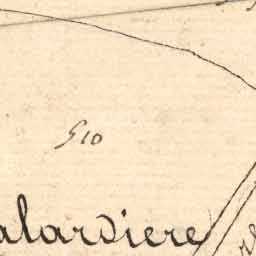 510
alardiere